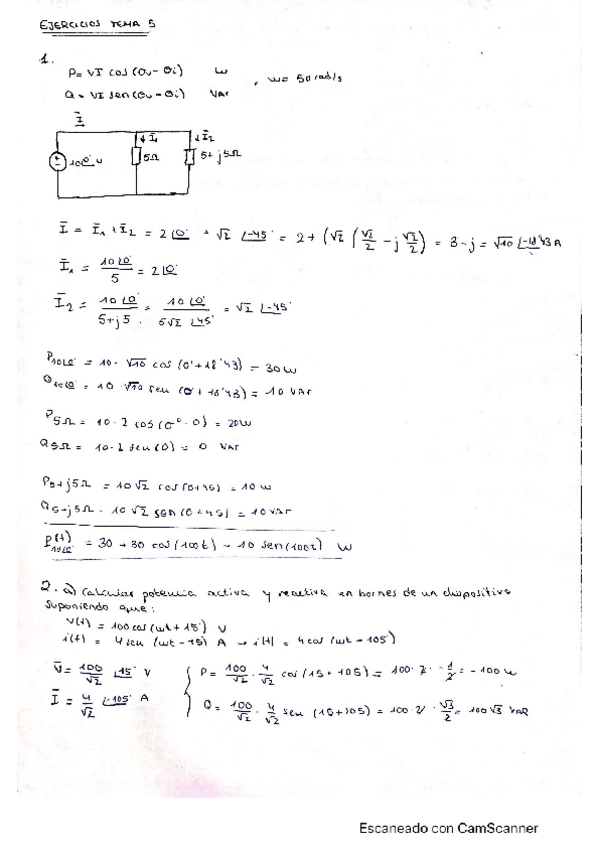 EJERCICIOS TEMA 5
1.
P= VI cos(θv-θi) W
, w= 50 rad/s
Q = VI sen(θv-θi) VAr
Ī
↓Ī1 ↓Ī2
10∠0° V 5Ω 5+j5Ω
Ī = Ī1 + Ī2 = 2∠0° + √2 ∠-45° = 2+(√2 (√2/2 - j√2/2) = 3-j = √10 ∠-18'43 A
Ī1 = 10∠0°/5 = 2∠0°
Ī2 = 10∠0°/5+j5 = 10∠0°/5√2 ∠45° = √2 ∠-45°
P10∠0° = 10· √10 cos(0°+18'43) = 30W
Q10∠0° = 10 √10 sen (0°+18'43) = 10 VAr
P5Ω = 10·2 cos(0°-0) = 20W
Q5Ω = 10·2 sen(0) = 0 VAr
P5+j5Ω = 10√2 cos(0+45) = 10W
Q5+j5Ω = 10√2 sen(0+45) = 10 VAr
P(t)10∠0° = 30+30 cos(100t) - 10 sen(100t) W
2. a) Calcular potencia activa y reactiva en bornes de un dispositivo
suponiendo que:
v(t) = 100cos(wt+15°) V
i(t) = 4sen(wt-15) A → i(t) = 4cos(wt-105°)
V̄= 100/√2 ∠15° V
P= 100/√2 · 4/√2 cos(15+105) = 100·2·-1/2 = -100W
Ī = 4/√2 ∠-105° A
Q= 100/√2 · 4/√2 sen (15+105) = 100·2·√3/2 = 100√3 VAR
Escaneado con CamScanner